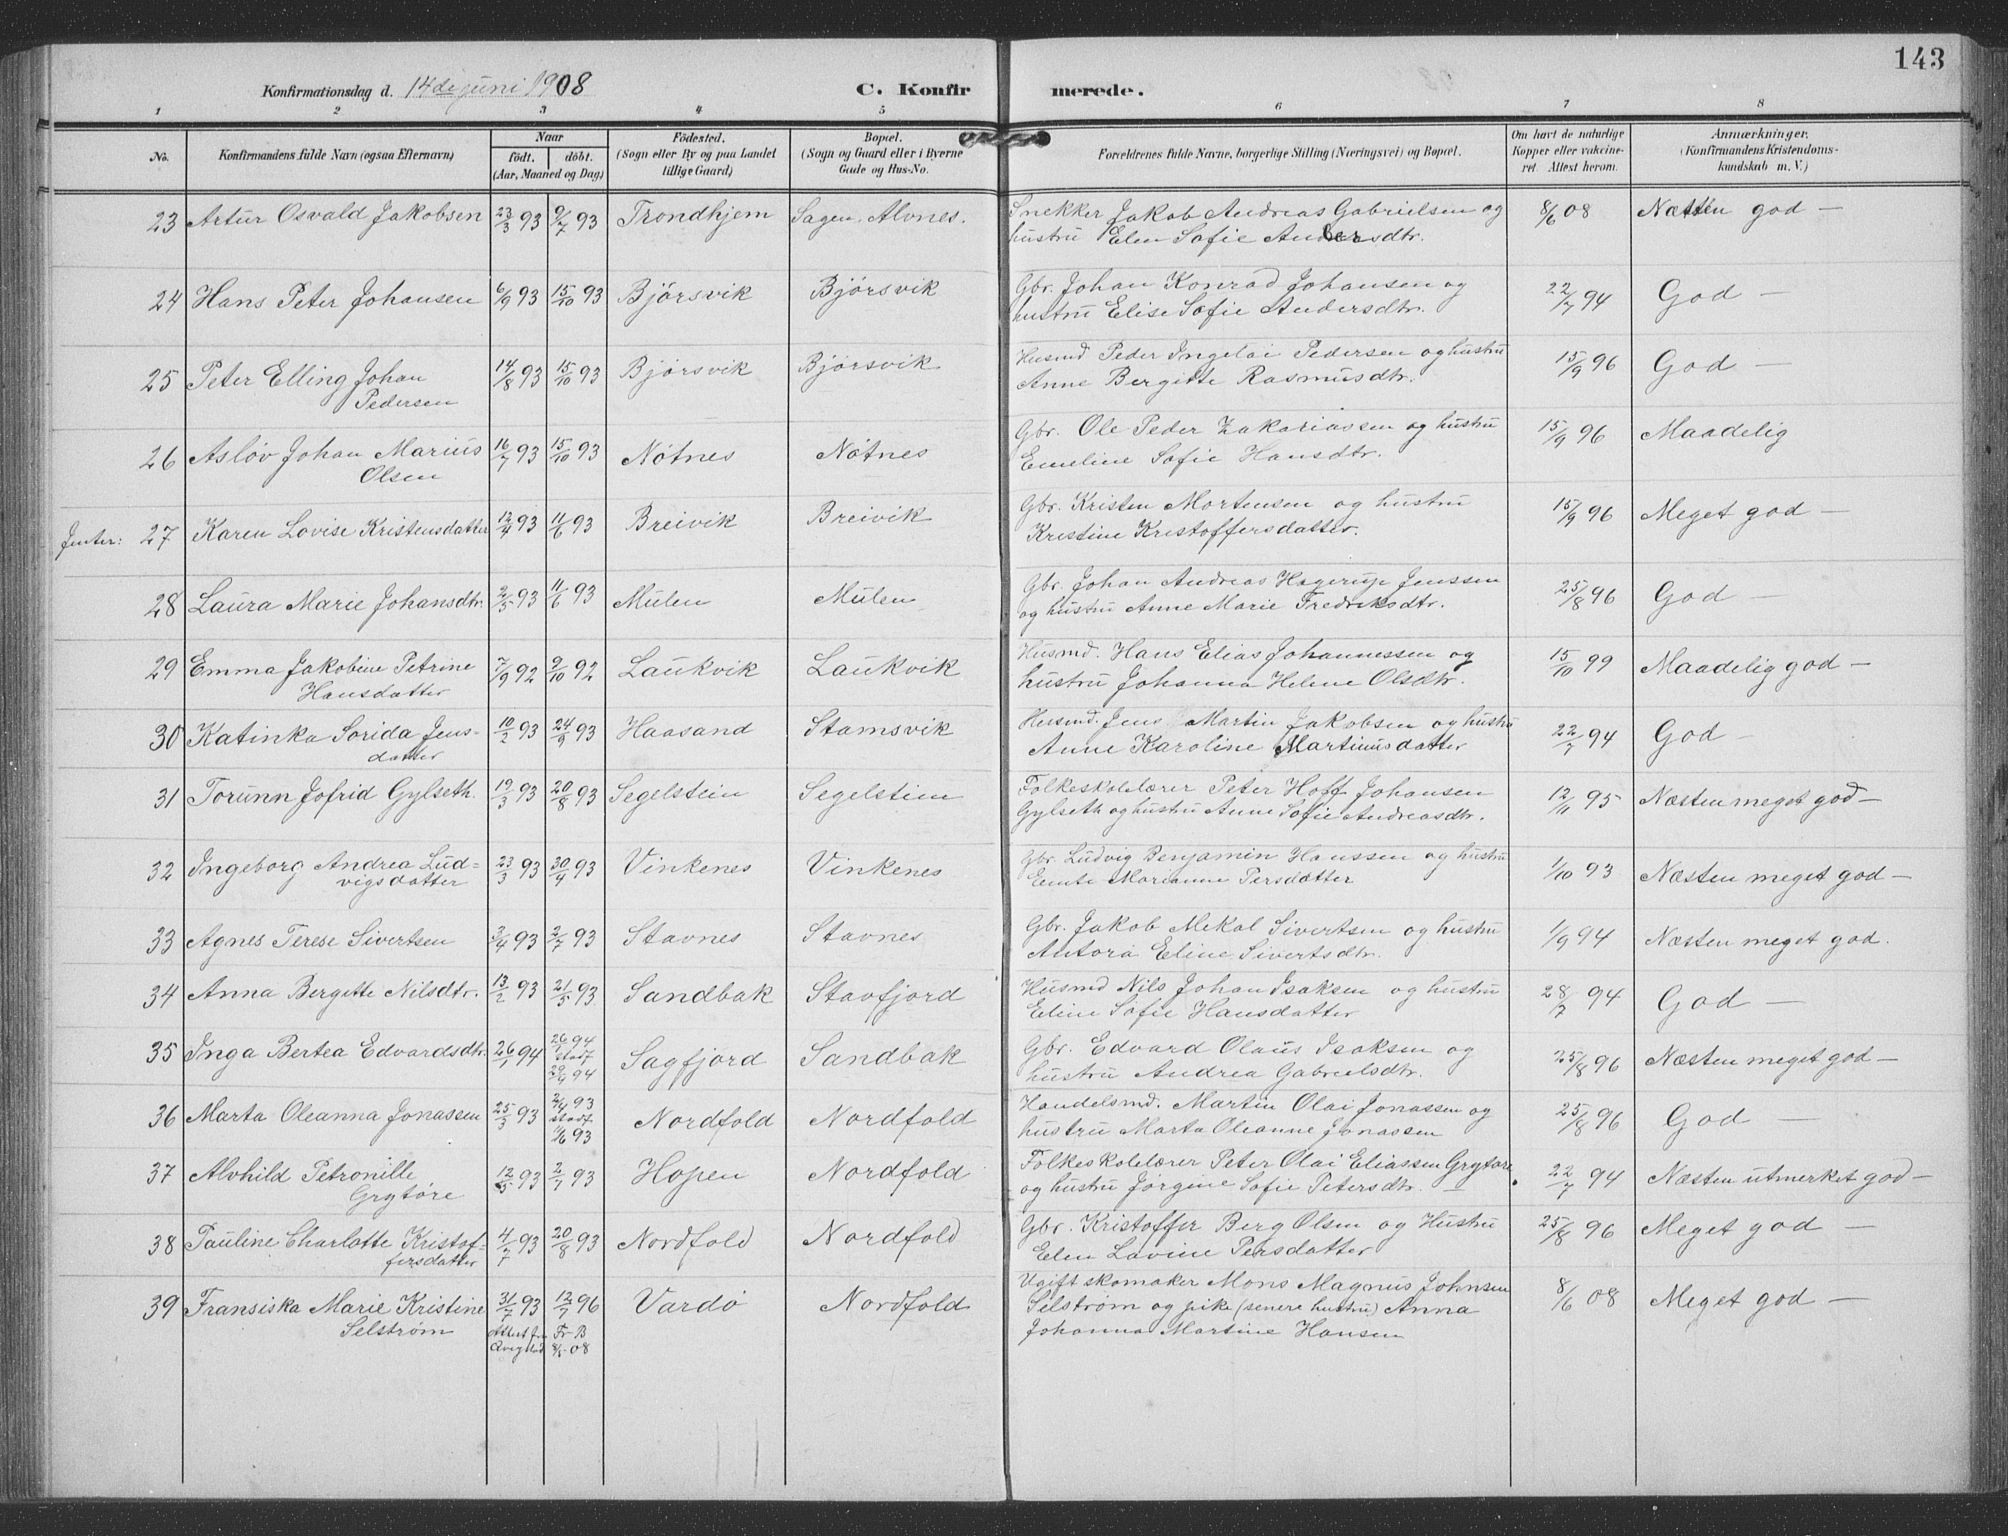 143
Konfirmationsdag d. 14de juni 1908
C. Konfirmerede.
1 2 3 4 5 6 7 8
No.
Konfirmandens fulde Navn (ogsaa Efternavn)
Naar
født. døbt.
(Aar, Maaned og Dag)
Fødested.
(Sogn eller By og paa Landet
tillige Gaard)
Bopæl.
(Sogn og Gaard eller i Byerne
Gade og Hus-No.
Forældrenes fulde Navne, borgerlige Stilling (Næringsvei) og Bopæl.
Om havt de naturlige
Kopper eller vakcine-
ret. Attest herom.
Anmærkninger.
(Konfirmandens Kristendoms-
kundskab m. V.)
23 Artur Osvald Jakobsen 23/3 93 9/7 93 Trondhjem Sagen, Alvnes. Snekker Jakob Andreas Gabrielsen og 8/6 08 Næsten god —
hustru Elen Sofie
24 Hans Peter Johansen 6/9 93 15/10 93 Bjørsvik Bjørsvik Gbr. Johan Konrad Johansen og 22/7 94 God —
hustru Elise Sofie Andersdtr.
25 Peter Elling Johan 14/8 93 15/10 93 Bjørsvik Bjørsvik Husmd Peder Ingelai Pedersen og hustru 15/9 96 God —
Pedersen Anne Bergitte Rasmusdtr.
26 Asløv Johan Marius 16/7 93 15/10 93 Nøtnes Nøtnes Gbr. Ole Peder Zakariassen og hustru 15/9 96 Maadelig
Olsen Emeline Sofie Hansdtr.
Jenter: 27 Karen Lovise Kristensdatter 12/4 93 11/6 93 Breivik Breivik Gbr. Kristen Mortensen og hustru 15/9 96 Meget god —
Kristine Kristoffersdatter.
28 Laura Marie Johansdtr. 2/5 93 11/6 93 Mulen Mulen Gbr. Johan Andreas Hagerup Jenssen 25/8 96 God —
og hustru Anne Marie Fredriksdtr.
29 Emma Jakobine Petrine 7/9 92 9/10 92 Laukvik Laukvik Husmd. Hans Elias Johannessen og 15/10 99 Maadelig god —
Hansdatter hustru Johanna Helene Olsdtr.
30 Katinka Sorida Jens- 10/2 93 24/9 93 Haasand Stamsvik Husmd. Jens Martin Jakobsen og hustru 22/7 94 God —
datter Anne Karoline Martinusdatter
31 Torunn Jofrid Gylseth. 19/3 93 20/8 93 Segelstein Segelstein Folkeskolelærer Peter Hoff Johansen 12/11 95 Næsten meget god —
Gylseth og hustru Anne Sofie Andreasdtr.
32 Ingeborg Andrea Lud- 23/3 93 30/4 93 Vinkenes Vinkenes Gbr Ludvig Benjamin Hanssen og hustru 1/10 93 Næsten meget god —
vigsdatter Marianne Persdatter
33 Agnes Terese Sivertsen 3/4 93 2/7 93 Stavnes Stavnes Gbr. Jakob Mekal Sivertsen og hustru 1/9 94 Næsten meget god.
Antora Eline Sivertsdtr.
34 Anna Bergette Nilsdtr. 13/2 93 21/5 93 Sandbak Stavfjord Husmd Nils Johan Isaksen og hustru 28/7 94 God —
Eline Sofie Hansdatter
35 Inga Bertea Edvardsdtr. 26/1 94 26/1 94 Sagfjord Sandbak Gbr. Edvard Olaus Isaksen og 25/8 96 Næsten meget god —
stadf 29/4 94 hustru Andrea Gabrielsdtr.
36 Marta Oleanna Jonassen 25/3 93 2/4 93 Nordfold Nordfold Handelsmd. Martin Olai Jonassen og 25/8 96 God —
stadf 11/6 93 hustru Marta Oleanne Jonassen
37 Alvhild Petronille 12/5 93 2/7 93 Hopen Nordfold Folkeskolelærer Peter Olai Eliassen Grytøre 22/7 94 Næsten utmerket god —
Grytøre og hustru Jørgine Sofie Petersdtr.
38 Pauline Charlotte Kristof- 4/7 93 20/8 93 Nordfold Nordfold Gbr. Kristoffer Berg Olsen og Hustru 25/8 96 Meget god —
fersdatter Elen Lavine Persdatter
39 Fransiska Marie Kristine 31/7 93 12/7 96 Vardø Nordfold Ugift skomaker Mons Magnus Johnsen 8/6 08 Meget god —
Selstrøm Selstrøm og pike (senere hustru) Anna
Attest Johanna Martine Hansen